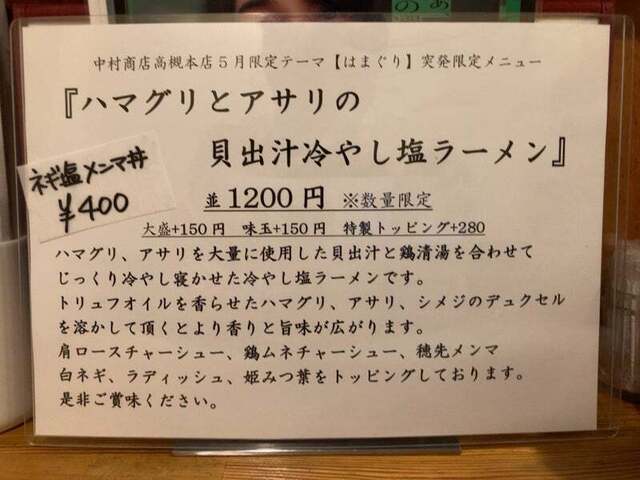 中村商店高槻本店５月限定テーマ【はまぐり】突発限定メニュー
『ハマグリとアサリの
貝出汁冷やし塩ラーメン』
ネギ塩メンマ丼
¥400
並1200円 ※数量限定
大盛+150円 味玉+150円 特製トッピング+280
ハマグリ、アサリを大量に使用した貝出汁と鶏清湯を合わせて
じっくり冷やし寝かせた冷やし塩ラーメンです。
トリュフオイルを香らせたハマグリ、アサリ、シメジのデュクセル
を溶かして頂くとより香りと旨味が広がります。
肩ロースチャーシュー、鶏ムネチャーシュー、穂先メンマ
白ネギ、ラディッシュ、姫みつ葉をトッピングしております。
是非ご賞味ください。